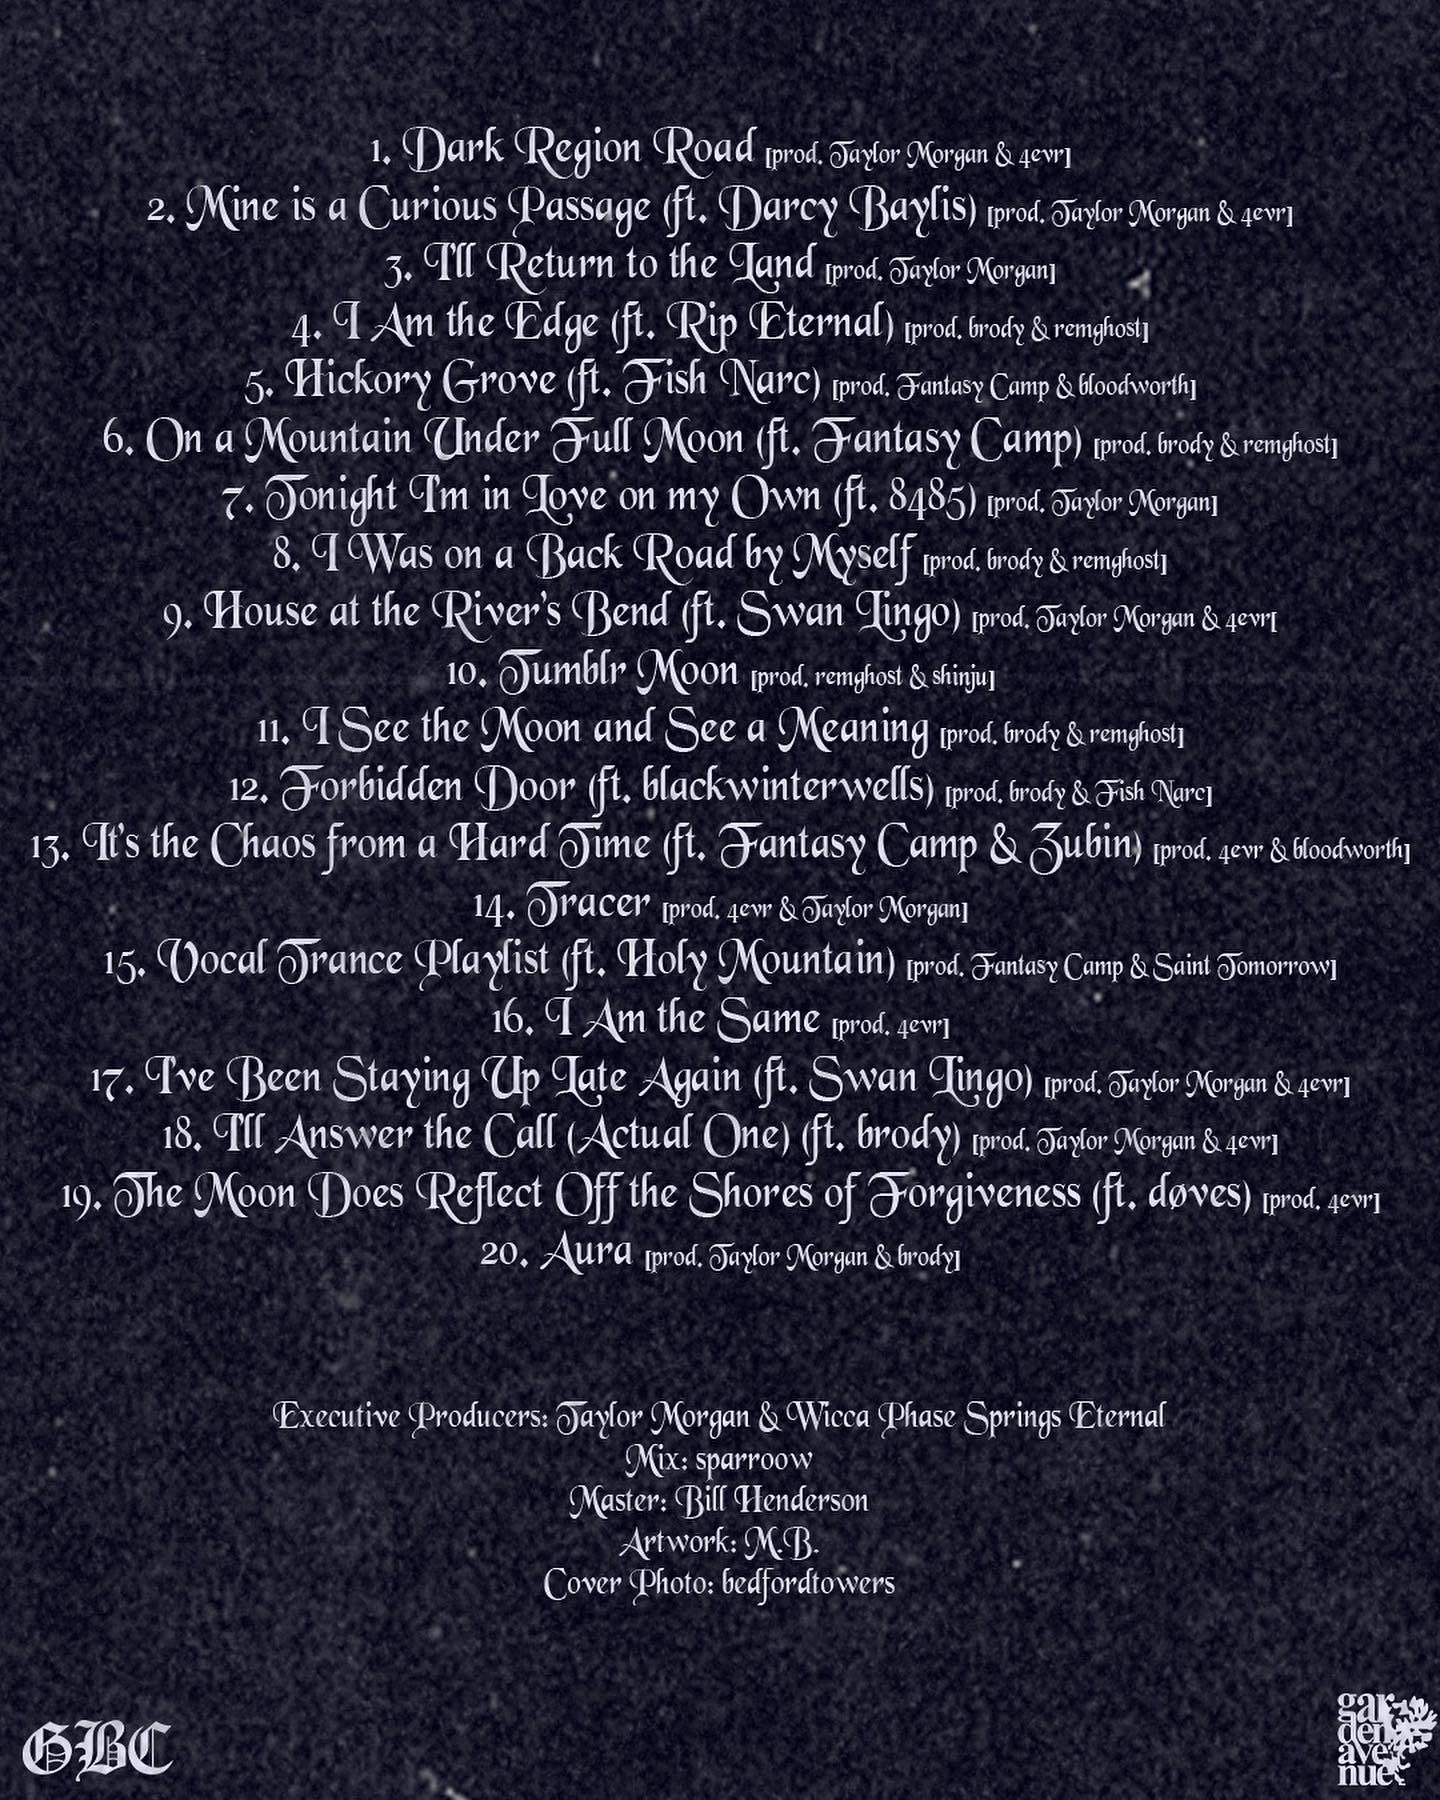 1. Dark Region Road [prod. Taylor Morgan & 4evr]
2. Mine is a Curious Passage (ft. Darcy Baylis) [prod. Taylor Morgan & 4evr]
3. I'll Return to the Land [prod. Taylor Morgan]
4. I Am the Edge (ft. Rip Eternal) [prod. brody & remghost]
5. Hickory Grove (ft. Fish Narc) [prod. Fantasy Camp & bloodworth]
6. On a Mountain Under Full Moon (ft. Fantasy Camp) [prod. brody & remghost]
7. Tonight I'm in Love on my Own (ft. 8485) [prod. Taylor Morgan]
8. I Was on a Back Road by Myself [prod. brody & remghost]
9. House at the River's Bend (ft. Swan Lingo) [prod. Taylor Morgan & 4evr[
10. Tumblr Moon [prod. remghost & shinju]
11. I See the Moon and See a Meaning [prod. brody & remghost]
12. Forbidden Door (ft. blackwinterwells) [prod. brody & Fish Narc]
13. It's the Chaos from a Hard Time (ft. Fantasy Camp & Zubin) [prod. 4evr & bloodworth]
14. Tracer [prod. 4evr & Taylor Morgan]
15. Vocal Trance Playlist (ft. Holy Mountain) [prod. Fantasy Camp & Saint Tomorrow]
16. I Am the Same [prod. 4evr]
17. I've Been Staying Up Late Again (ft. Swan Lingo) [prod. Taylor Morgan & 4evr]
18. I'll Answer the Call (Actual One) (ft. brody) [prod. Taylor Morgan & 4evr]
19. The Moon Does Reflect Off the Shores of Forgiveness (ft. døves) [prod. 4evr]
20. Aura [prod. Taylor Morgan & brody]
Executive Producers: Taylor Morgan & Wicca Phase Springs Eternal
Mix: sparroow
Master: Bill Henderson
Artwork: M.B.
Cover Photo: bedfordtowers
GBC
gar
den
ave
nue